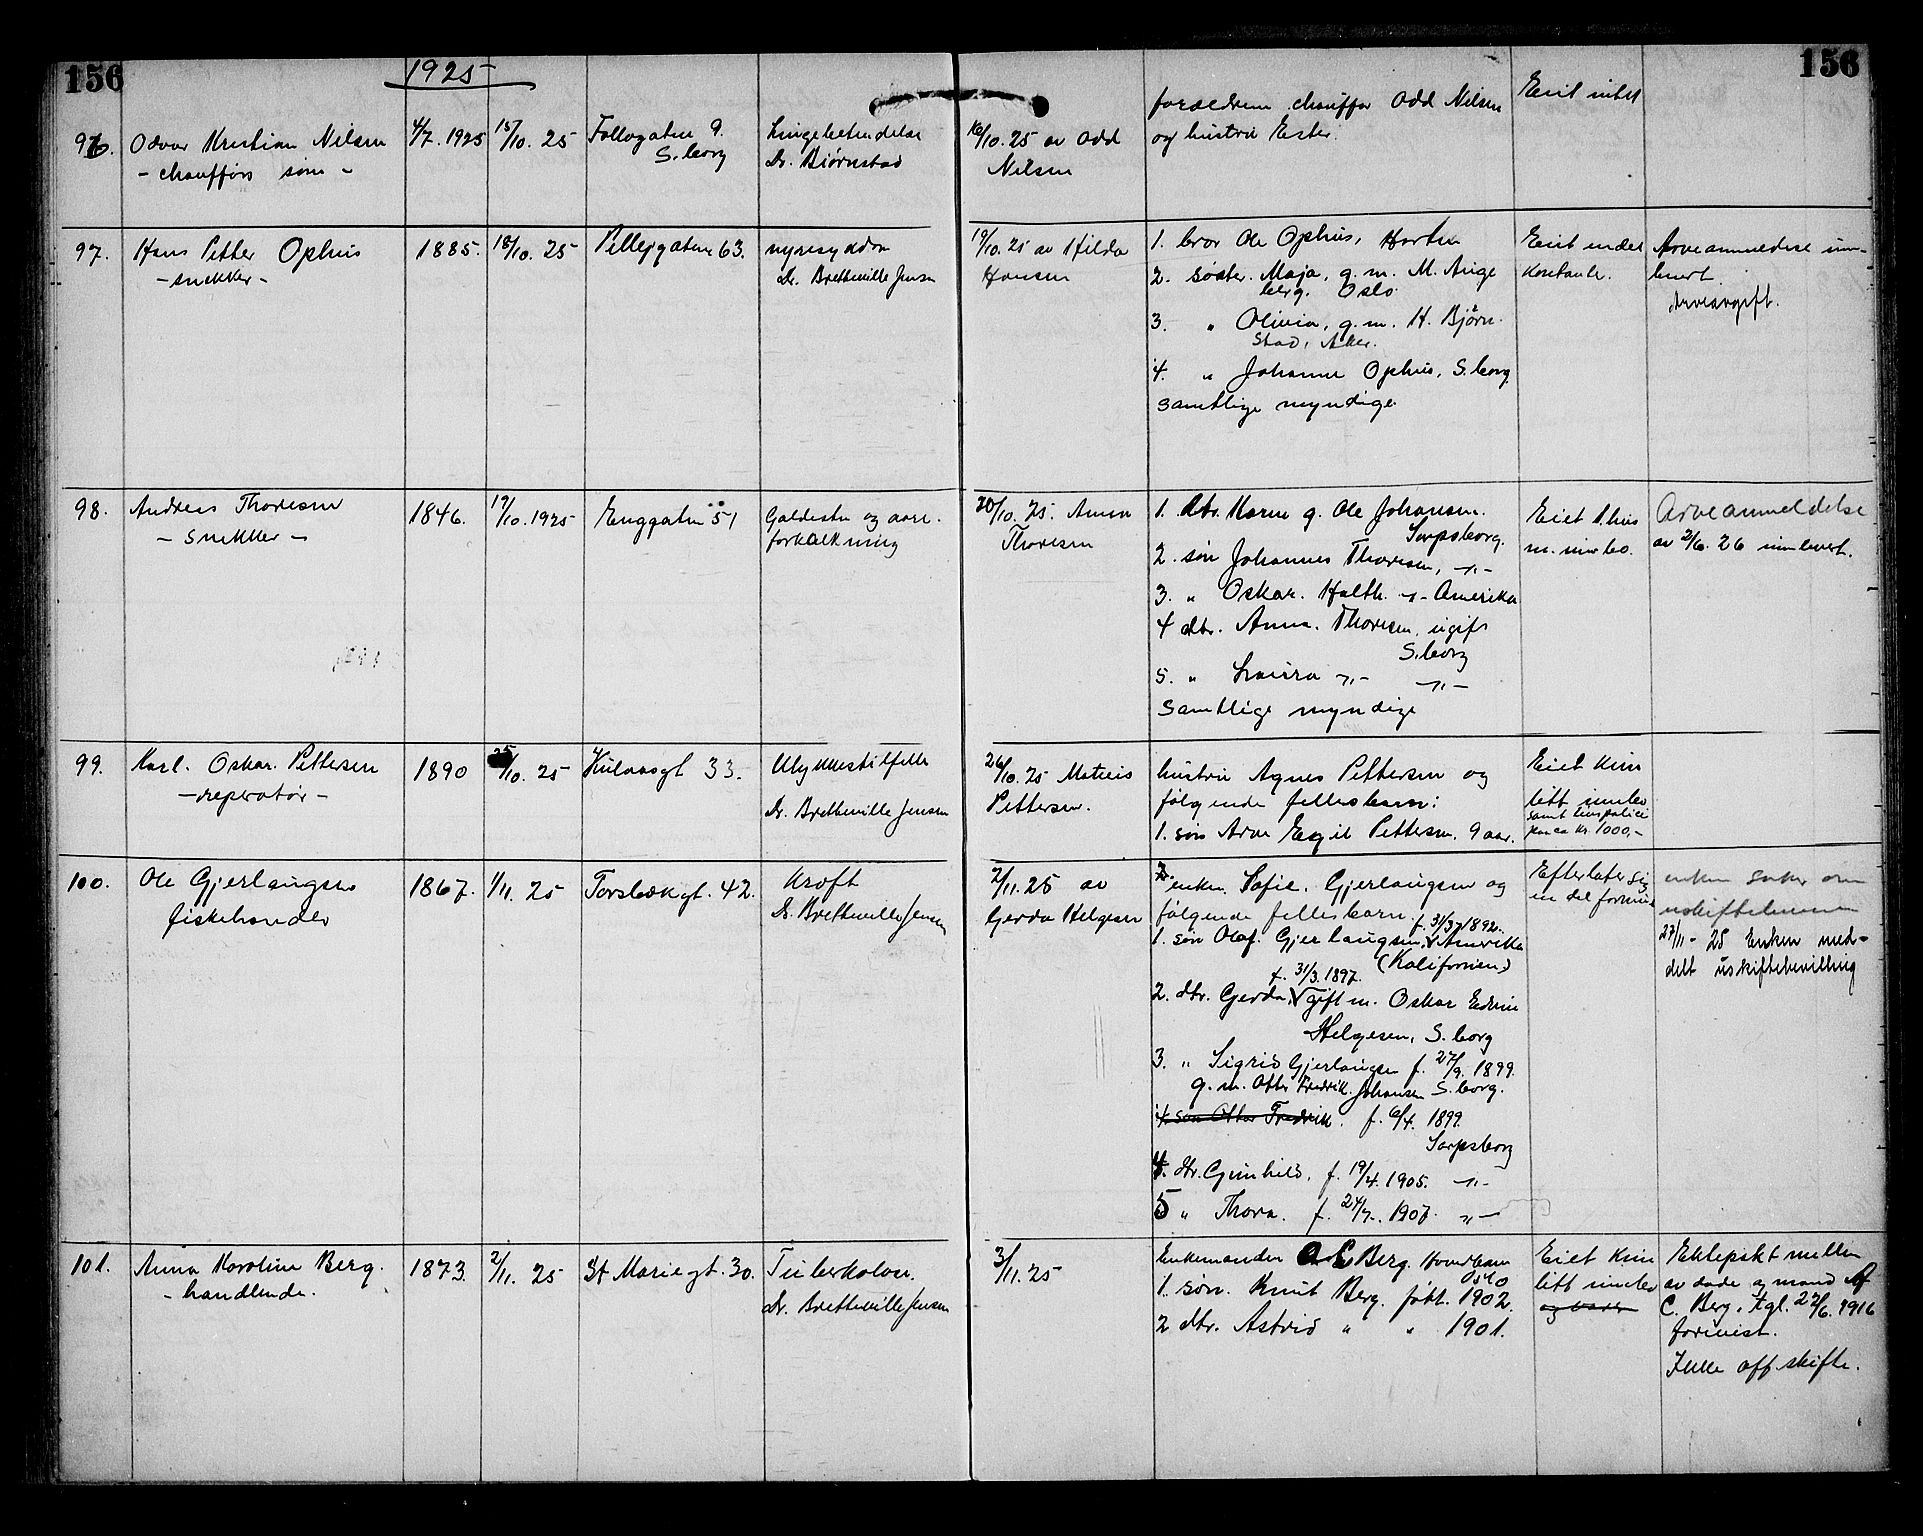 156
1925
156
96. Odvar Kristian Nilsen
- chaufførs søn -
4/7. 1925
15/10. 25
Follogaten 9.
S.borg
Lungebetendelse
Dr. Biørnstad
16/10. 25 av Odd
Nilsen
forældrene chauffør Odd Nilsen
og hustru Ester.
Eiet intet
97. Hans Petter Ophus
- snekker -
1885.
18/10. 25
Pellygaten 63.
nyresygdom
Dr. Bretteville Jensen
19/10. 25 av Hilda
Hansen
1. bror Ole Ophus, Horten
2. søster. Maja, g. m. M. Ange
berg. Oslo
3. " Olivia, g. m. H. Bjørn.
stad, Aker.
4. " Johanne Ophus, S.borg
samtlige myndige
Eiet endel
kontanter.
Arveanmeldelse inn-
levert.
Arveavgift.
98. Andreas Thoresen
- snekker -
1846.
19/10. 1925
Enggaten 51
Galdesten og aare-
forkalkning
20/10. 25. Anna
Thoresen
1. dtr. Karen g. Ole Johansen.
Sarpsborg.
2. søn Johannes Thoresen, -"-
3. " Oskar. Halth. -"- Amerika
4 dtr. Anna. Thoresen, ugift
S.borg
5. " Laura -"- -"-
Samtlige myndige
Eiet 1 hus
m. innbo.
Arveanmeldelse
av 2/6. 26 innlevert.
99. Karl. Oskar. Pettersen
- reperatør -
1890
25/10. 25
Kulaasgt 33.
Ulykkestilfelle
Dr. Bretteville Jensen
26/10. 25 Mathias
Pettersen.
hustru Agnes Pettersen og
følgende fellesbarn:
1. søn Arne Egil Pettersen. 9 aar.
Eiet kun
litt innbo
samt livspolice
paa ca kr. 1000,-
100. Ole Gjerlaugsen
fiskehandler
1867.
1/11. 25
Torsbækgt. 42.
Kræft
Dr. Bretteville Jensen
2/11. 25 av
Gerda Helgesen
enken Sofie. Gjerlaugsen og
følgende fellesbarn. f. 31/3 1892.
1. søn Olaf. Gjerlaugsen, Amerika
(Kalifornien)
f. 31/3. 1897.
2. dtr. Gerda, gift m. Oskar Edvin
Helgesen, S.borg
3. " Sigrid Gjerlaugsen f. 27/9. 1899.
g. m. Otto Fredrik. Johansen S.borg.
4 søn Otto Fredrik. f. 6/4. 1899.
Sarpsborg
4. dtr. Gunhild, f. 19/4. 1905. -"-
5 " Thora. f. 24/7. 1907. -"-
Efterlater sig
en del formue
enken søker om
uskiftebevilling
27/11 - 25 Enken med-
delt uskiftebevilling
101. Anna Karoline Berg.
- handlende.
1873.
2/11. 25
St Mariegt. 30.
Tuberkolose.
Dr. Bretteville Jensen
3/11. 25
Enkemanden A C Berg.
Oslo
1. søn. Knut Berg. født. 1902.
2 dtr. Astrid " " 1901.
Eiet kun
litt innbo
og varer
Ektepakt mellem
av døde og mand A
C. Berg, tgl. 22/6. 1916
forevist.
Ikke off. skifte.